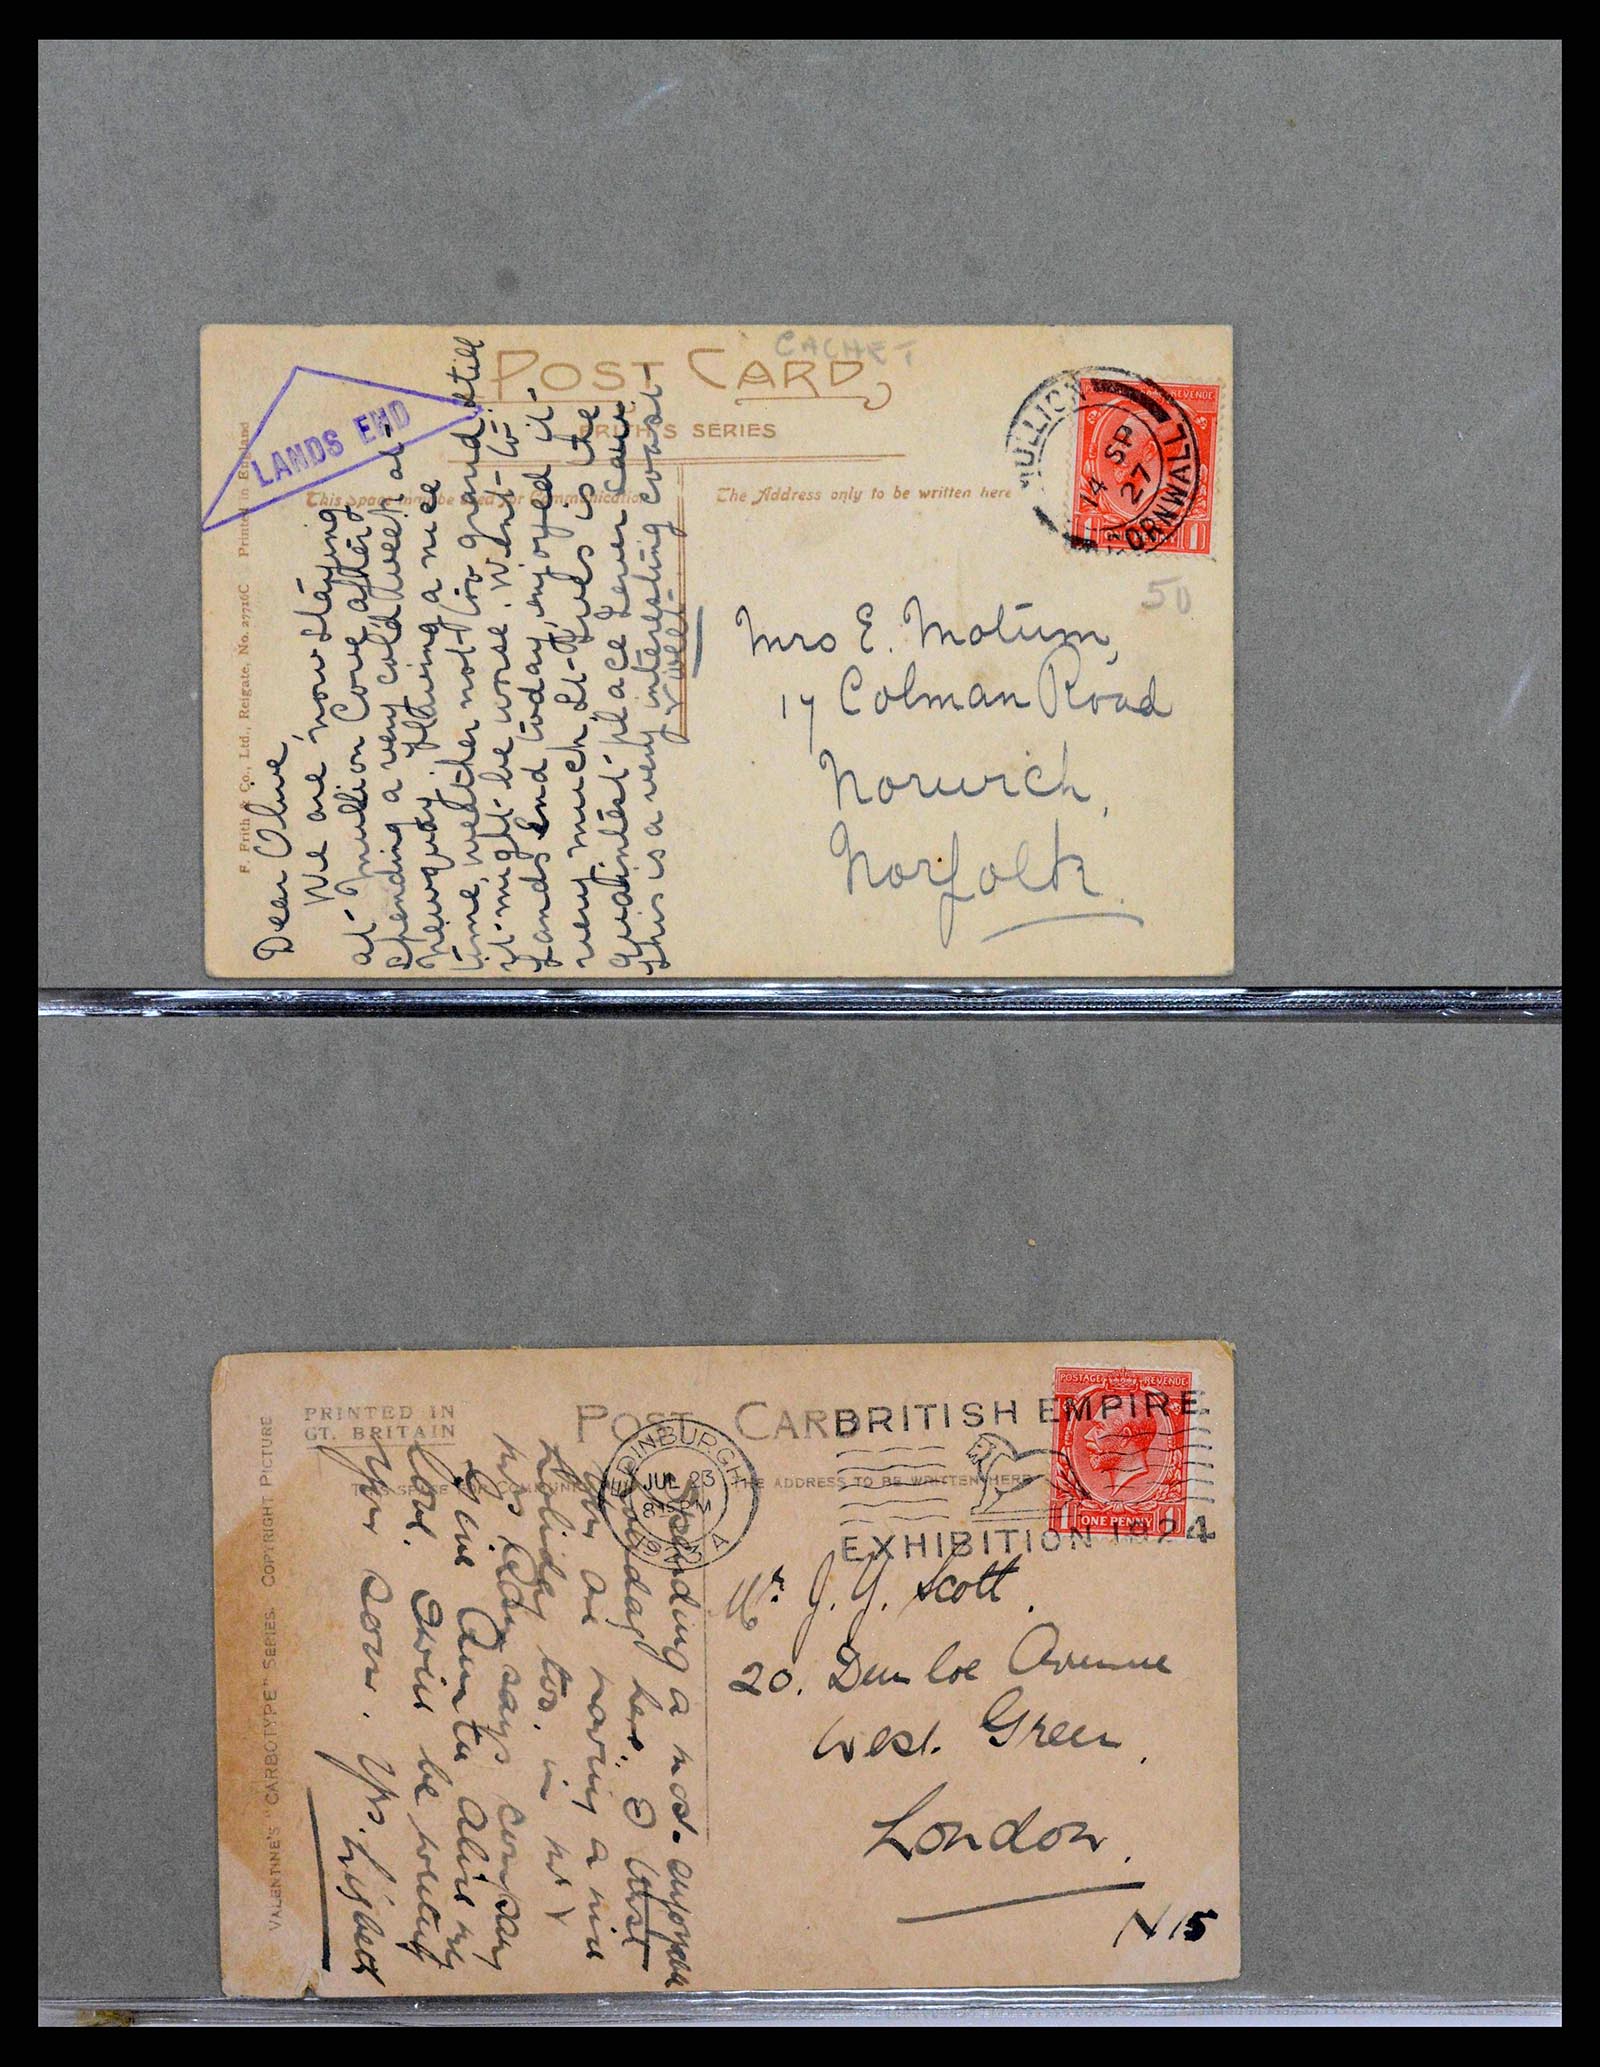 CACHET
POST CARD
FRITH'S SERIES
LANDS END
This Space may be used for Communication
The Address only to be written here
F. Frith & Co., Ltd., Reigate, No. 27716C Printed in England
MULLION
14 SP 27
CORNWALL
POSTAGE REVENUE
1 ONE PENNY 1
50
Dear Olive,
We are now staying
at Mullion Cove after
spending a very cold week at
Newquay. Having a nice
time, weather not too grand still
it might be worse. Went to
Lands End today, enjoyed it
very much, St. Ives is the
quaintest place I ever saw
this is a very interesting coast
Mrs E. Motum,
17 Colman Road
Norwich,
Norfolk.
PRINTED IN
GT. BRITAIN
POST CARD
THIS SPACE FOR COMMUNICATION
THE ADDRESS TO BE WRITTEN HERE
VALENTINE'S "CARBOTYPE" SERIES. COPYRIGHT PICTURE
EDINBURGH
JUL 23
8 15 PM
A
BRITISH EMPIRE
EXHIBITION 1924
POSTAGE REVENUE
1 ONE PENNY 1
Spending a most enjoyable
holiday here. I trust
you are having a nice
holiday too. in
says
Give Auntie my
love. be writing
you soon. Yrs.
J. Scott.
20. Avenue
West Green,
London.
N 15